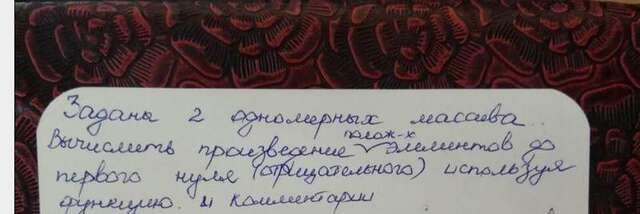 Заданы 2 одномерных массива.
Вычислить произведение полож-х элементов до
первого нуля (отрицательного) используя
функцию. и комментарии